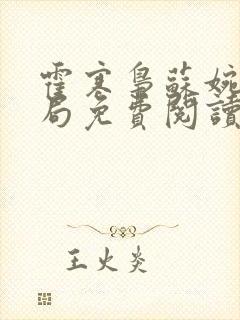 霍寒梟蘇婉
局免費閱讀
王火炎